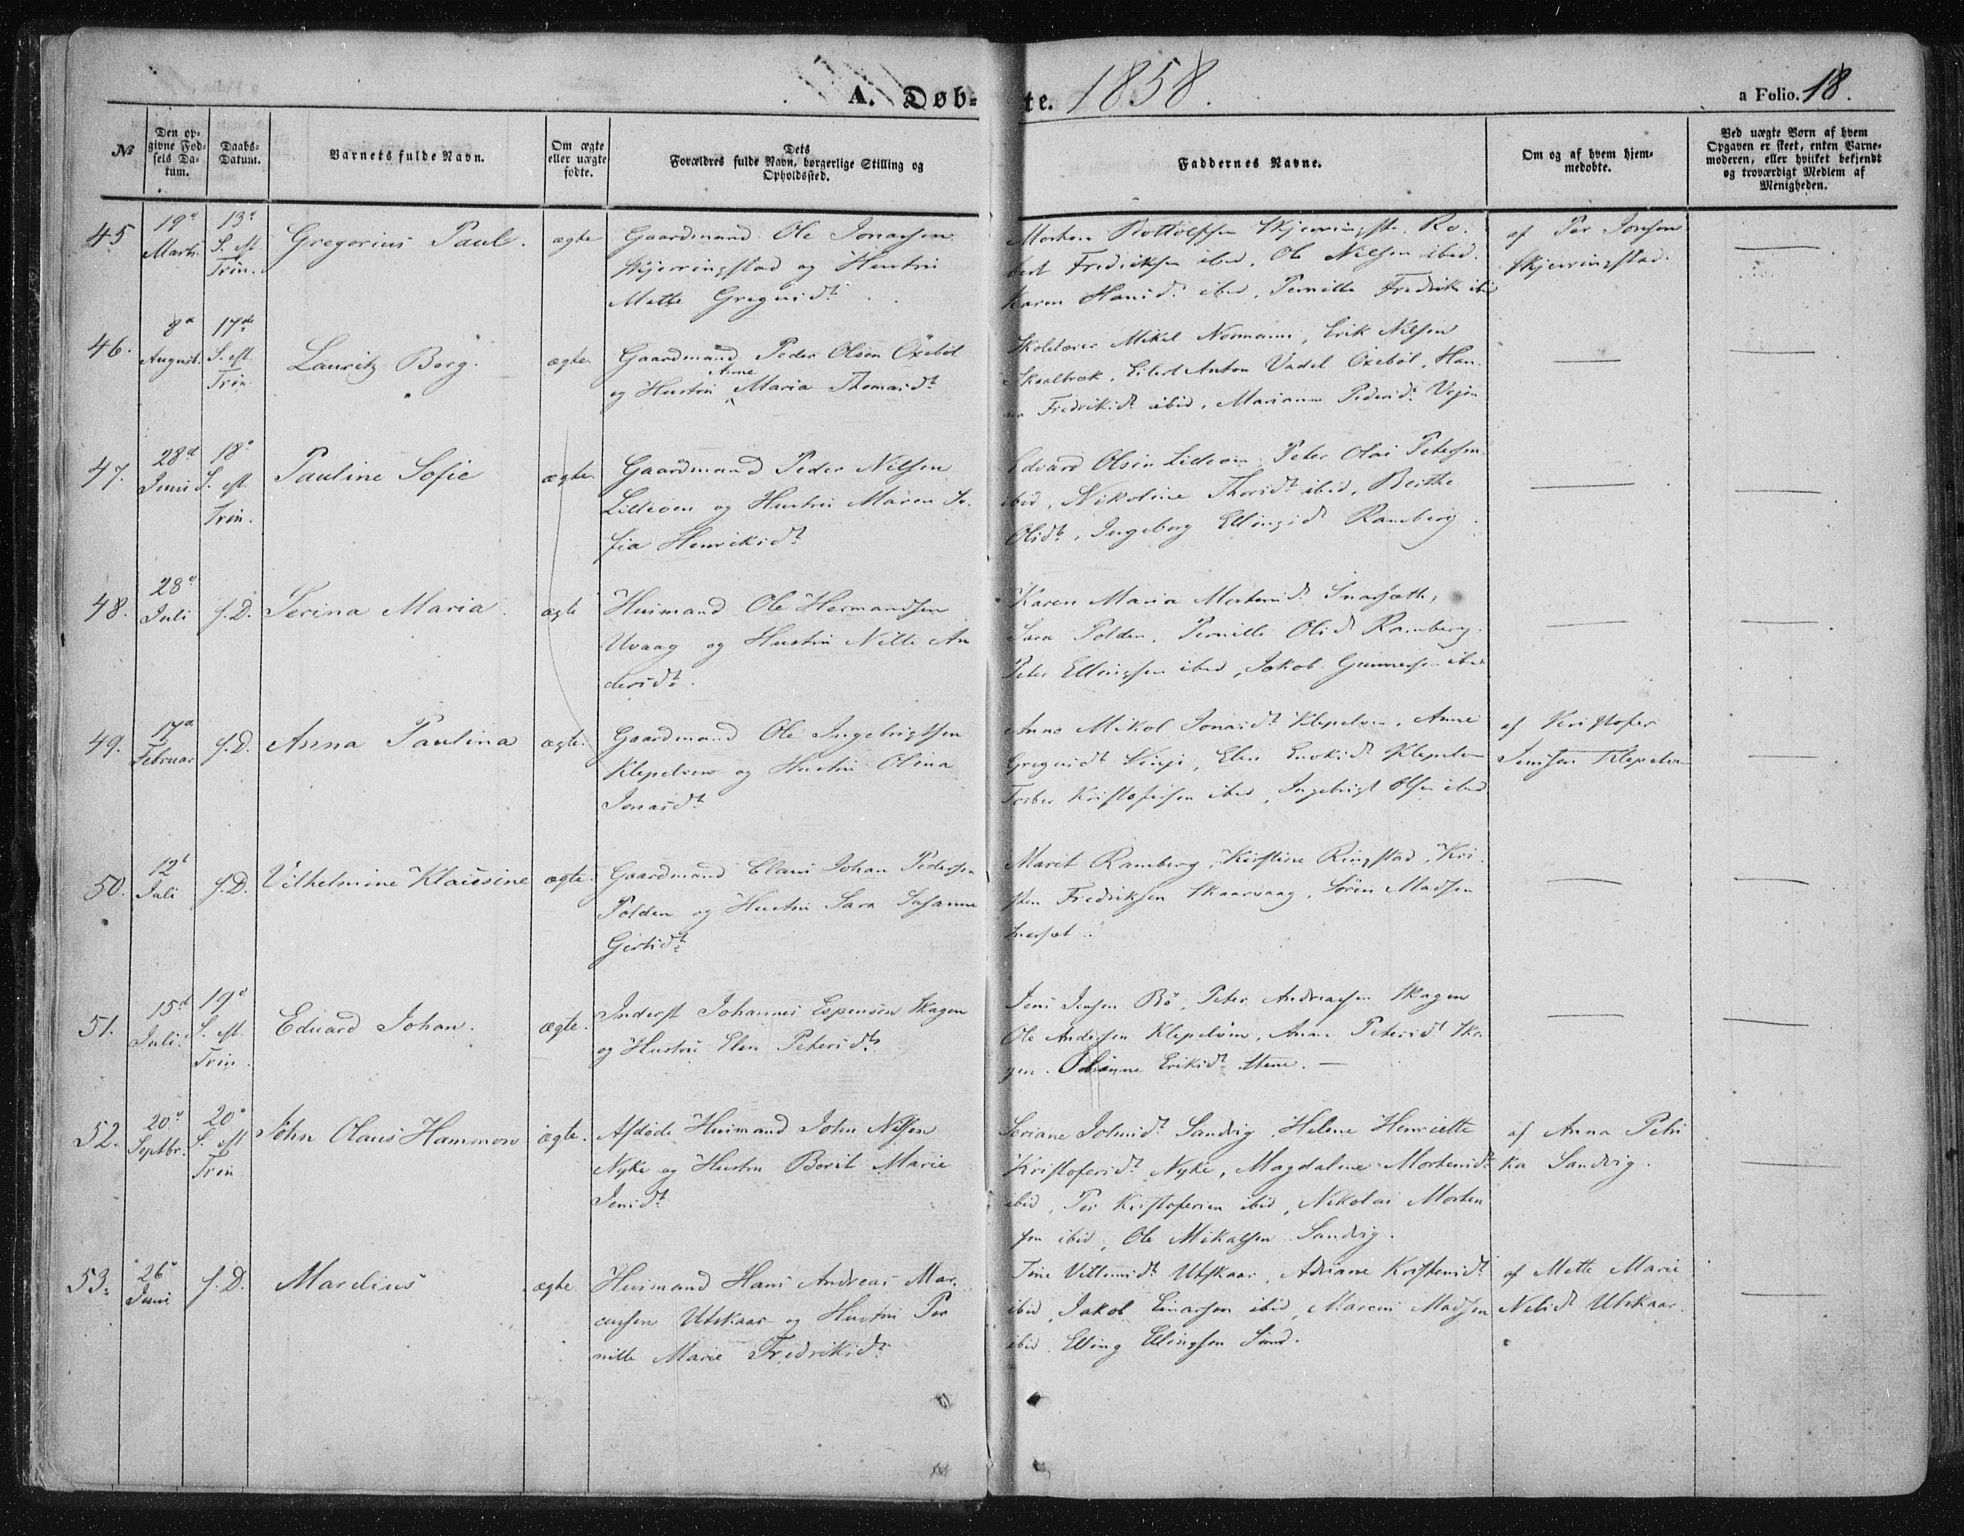 A. Døbte. 1858.
a Folio. 18.
No
Den opgivne Fødsels Datum.
Daabs-Datum.
Barnets fulde Navn.
Om ægte eller uægte fødte.
Dets Forældres fulde Navn, borgerlige Stilling og Opholdssted.
Faddernes Navne.
Om og af hvem hjemmedøbte.
Ved uægte Børn af hvem Opgaven er skeet, enten Barnemoderen, eller hvilket bekjendt og troværdigt Medlem af Menigheden.
45
19d Marts
13d S. eft. Trin.
Gregorius Paul.
ægte
Gaardmand Ole Jonassen
Skjerringstad og Hustru
Mette Gregersdt
Morten Skjerringst. Ro-
bert Fredriksen ibid, Ole Nilsen ibid.
Karen Hansdt ibid, Pernille Fredrik ibid
af Per Jonsen
Skjerringstad.
46.
8d August.
17de S. eft. Trin.
Lauritz Berg.
ægte.
Gaardmand Peder Olsen Oxebøl
og Hustru Anne Maria Thomasdt
Skolelærer Mikel Normann, Erik Nilsen
Skaalbrek, Eilert Anton Vadel Oxebøl, Han-
na Fredrikdt ibid, Marianne Pedersdt
47.
28d Juni
18d S. eft. Trin.
Pauline Sofie
ægte.
Gaardmand Peder Nilsen
Lilleøen og Hustru Maren So-
fia Henrikidt
Edvard Olsen Lilleøen, Peter Olai Petersen
ibid, Nikoline Thoridt ibid, Berthe
Olidt, Ingeborg Ellingsdt Ramberg.
48.
28d Juli
f. D.
Serina Maria.
ægte
Husmand Ole Hermandsen
Uvaag og Hustru Nille An-
dersdt.
Karen Maria Mortensdt Snarsæth,
Sara Polden, Pernille Olidt Ramberg.
Peter Ellingsen ibid, Jakob Gunnersen ibid
49.
17d Februar
f. D.
Anna Paulina
ægte.
Gaardmand Ole Ingebrigtsen
Klepelven og Hustru Olina
Jonasdt
Anne Mikol Jonasdt Klepelven, Anne
Gregersdt Vinje, Elen Klepelven
Torber Kristofersen ibid, Ingebrigt Olsen ibid
af Kristofer
Jensen Klepelven
50.
12t Juli
f. D.
Vilhelmine Klausine
ægte.
Gaardmand Claus Johan Pedersen
Polden og Hustru Sara Susanne
Gertsdt
Marit Ramberg, Kirstine Ringstad, Kri-
sten Fredriksen Skaarvaag, Sören Madsen
Snarset.
51.
15d Juli.
19d S. eft. Trin.
Edvard Johan.
ægte.
Inderst Johannes Espensen Skagen
og Hustru Elen Petersdt
Jens Jensen Bö, Peter Andreassen Skagen
Ole Andersen Klepelven, Anne Petersdt Ska-
gen. Johanne Erikidt Stene. —
52.
20d Septbr.
20d S. eft. Trin
John Olaus Hammon
ægte.
Afdøde Husmand John Nilsen
Nyke og Hustru Berit Marie
Jensdt
Seriane Johnsdt Sandvig, Helene Henriette
Kristofersdt Nyke, Magdalene Mortensdt
ibid, Per Kristofersen ibid, Nikolai Morten-
sen ibid, Ole Mikalsen Sandvig.
af Anna Petri-
ka Sandvig.
53.
26d Juni
f. D.
Marelius
ægte.
Husmand Hans Andreas Mar-
cussen Utskaar og Hustru Per-
nille Marie Fredrikidt
Tine Villumsdt Utskaar, Adriane Kristensdt
ibid, Jakob Einarsen ibid, Marcus Madsen
ibid, Elling Ellingsen Sund.
af Mette Marie
Nilsdt Utskaar.